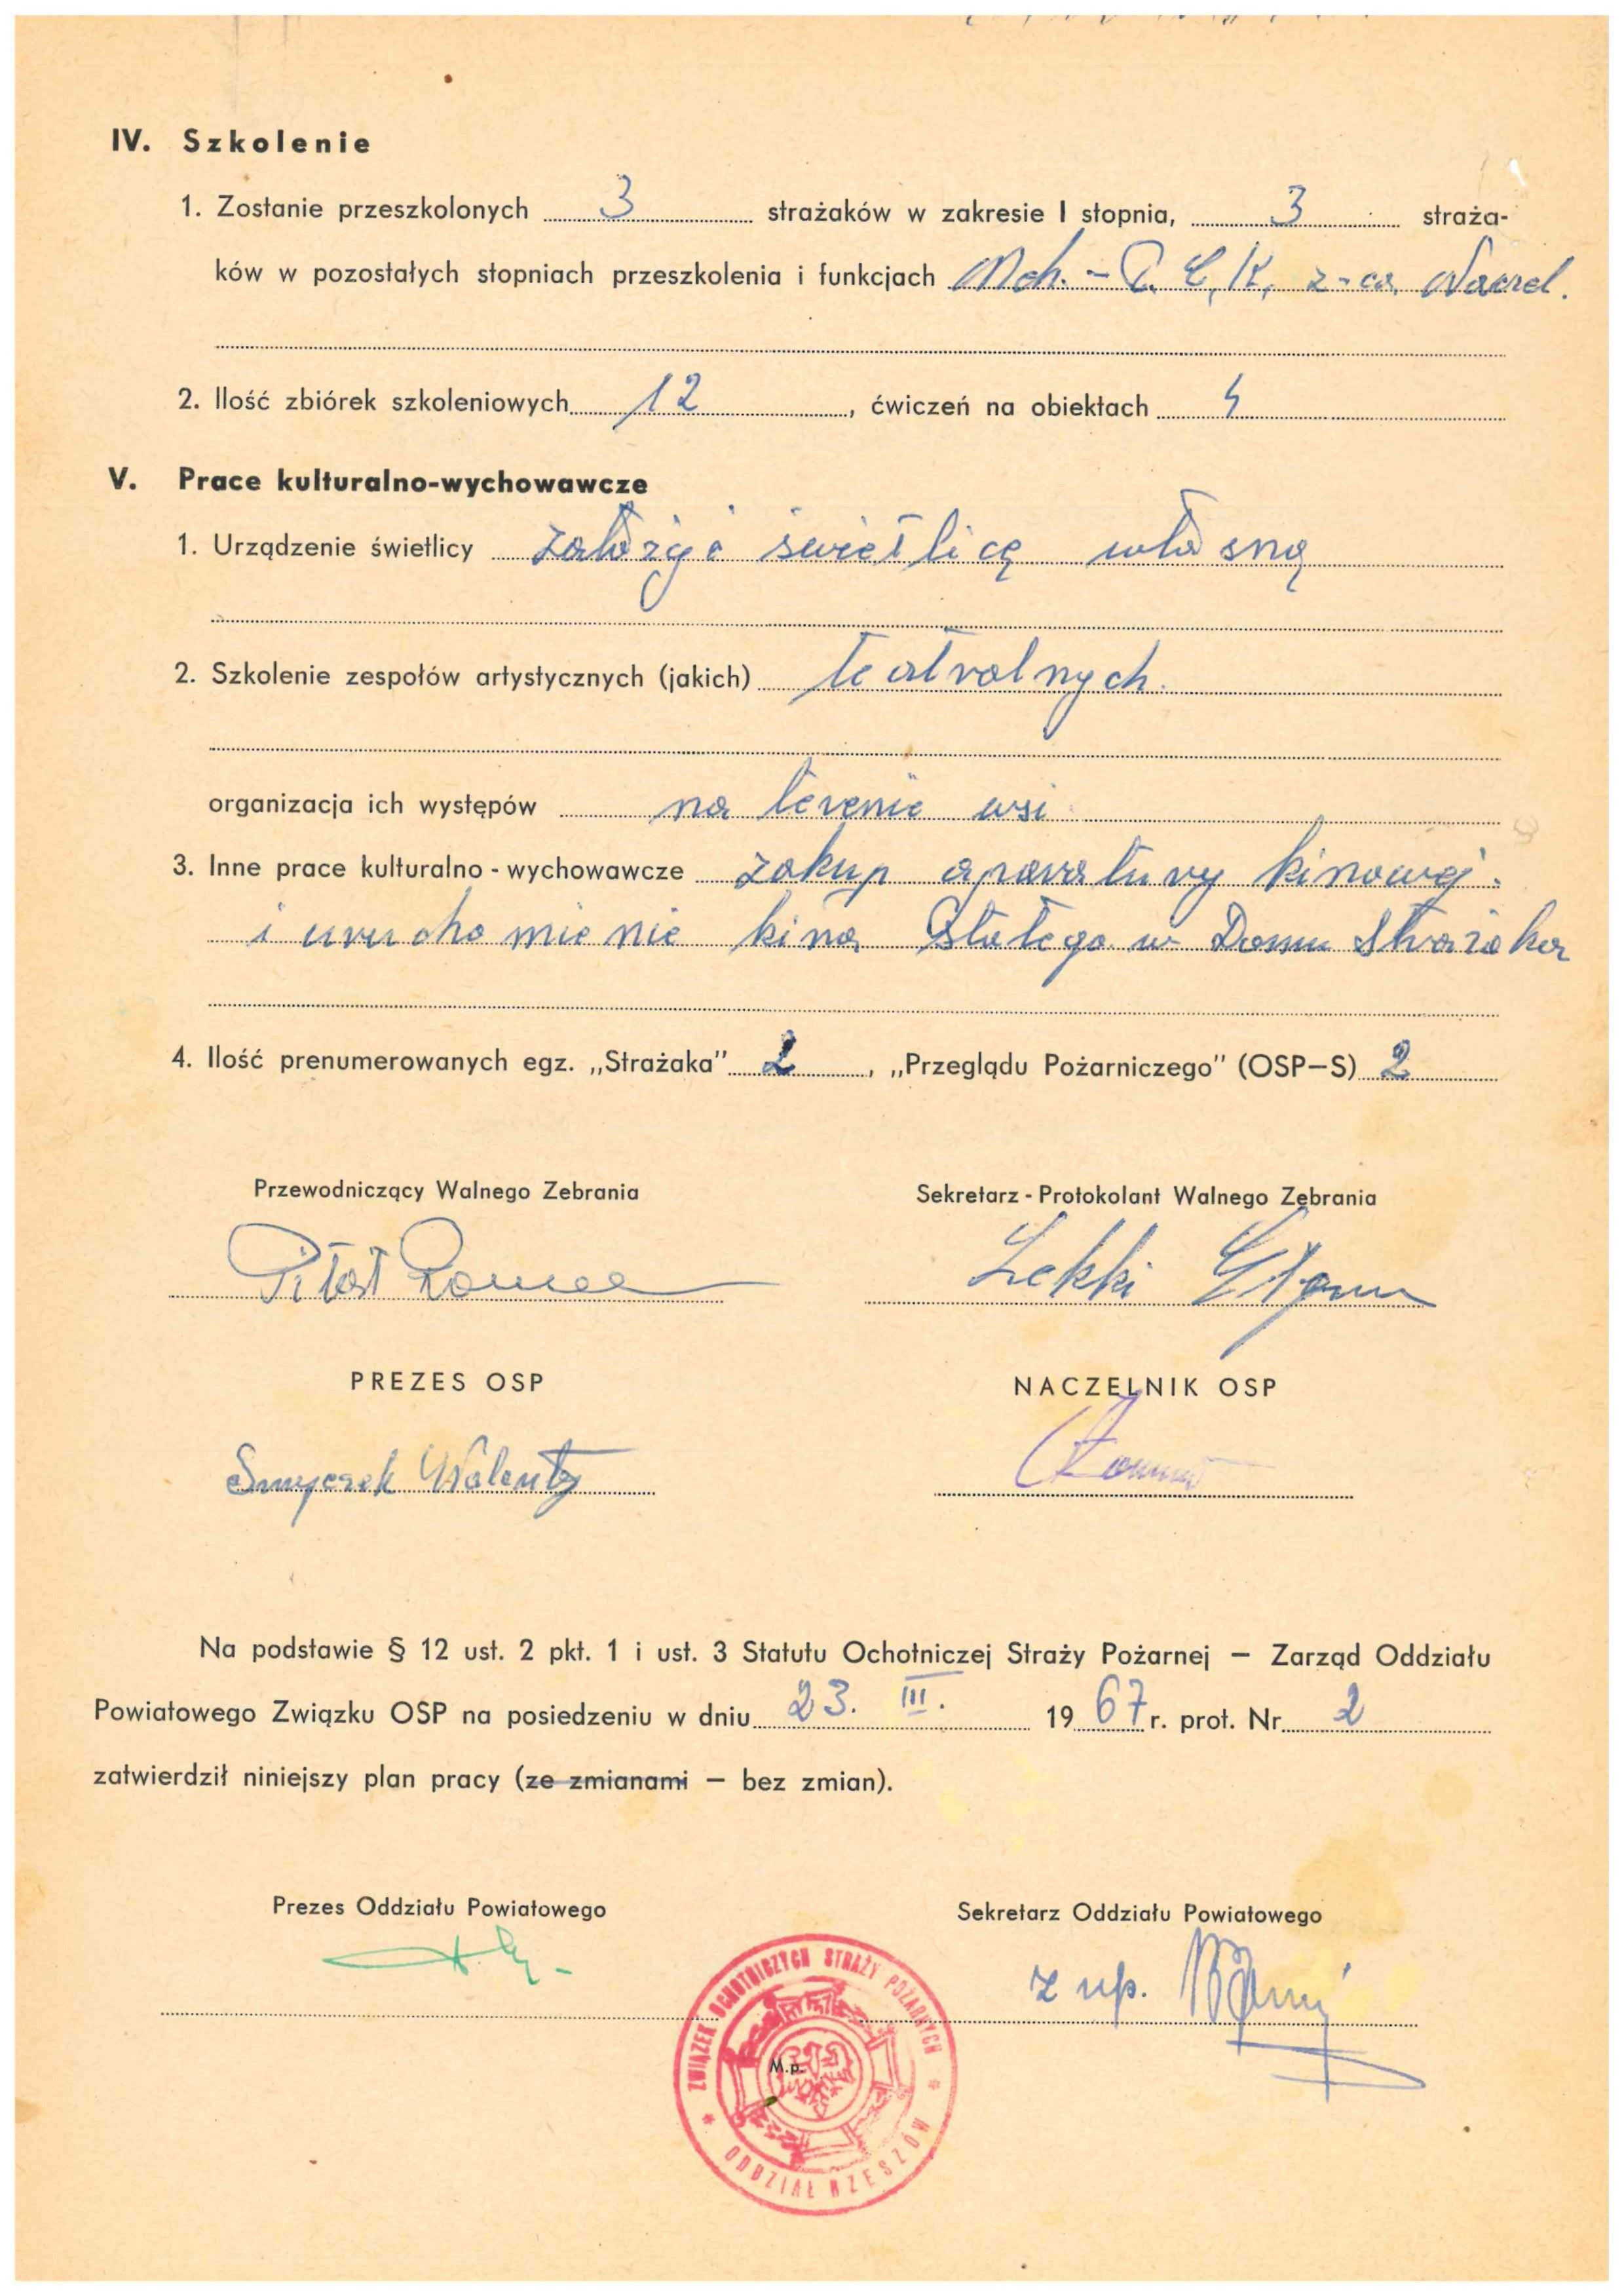 IV. Szkolenie
1. Zostanie przeszkolonych 3 strażaków w zakresie I stopnia, 3 straża-
ków w pozostałych stopniach przeszkolenia i funkcjach Meh. - P. C, K, z-ca. Naczel.
2. Ilość zbiórek szkoleniowych 12, ćwiczeń na obiektach 4
V. Prace kulturalno-wychowawcze
1. Urządzenie świetlicy założyć świetlicę własną
2. Szkolenie zespołów artystycznych (jakich) teatralnych.
organizacja ich występów na terenie wsi
3. Inne prace kulturalno-wychowawcze zakup aparatury kinowej
i uruchomienie kina Stałego w Domu Strażaka
4. Ilość prenumerowanych egz. „Strażaka" 2, „Przeglądu Pożarniczego" (OSP–S) 2
Przewodniczący Walnego Zebrania Sekretarz-Protokolant Walnego Zebrania
Pitat Roman Lekki
PREZES OSP NACZELNIK OSP
Smyczek Walenty
Na podstawie § 12 ust. 2 pkt. 1 i ust. 3 Statutu Ochotniczej Straży Pożarnej — Zarząd Oddziału
Powiatowego Związku OSP na posiedzeniu w dniu 23. III. 1967 r. prot. Nr 2
zatwierdził niniejszy plan pracy (ze zmianami — bez zmian).
Prezes Oddziału Powiatowego Sekretarz Oddziału Powiatowego
z up.
M.p.
ZWIĄZEK OCHOTNICZYCH STRAŻY POŻARNYCH * ODDZIAŁ RZESZÓW *